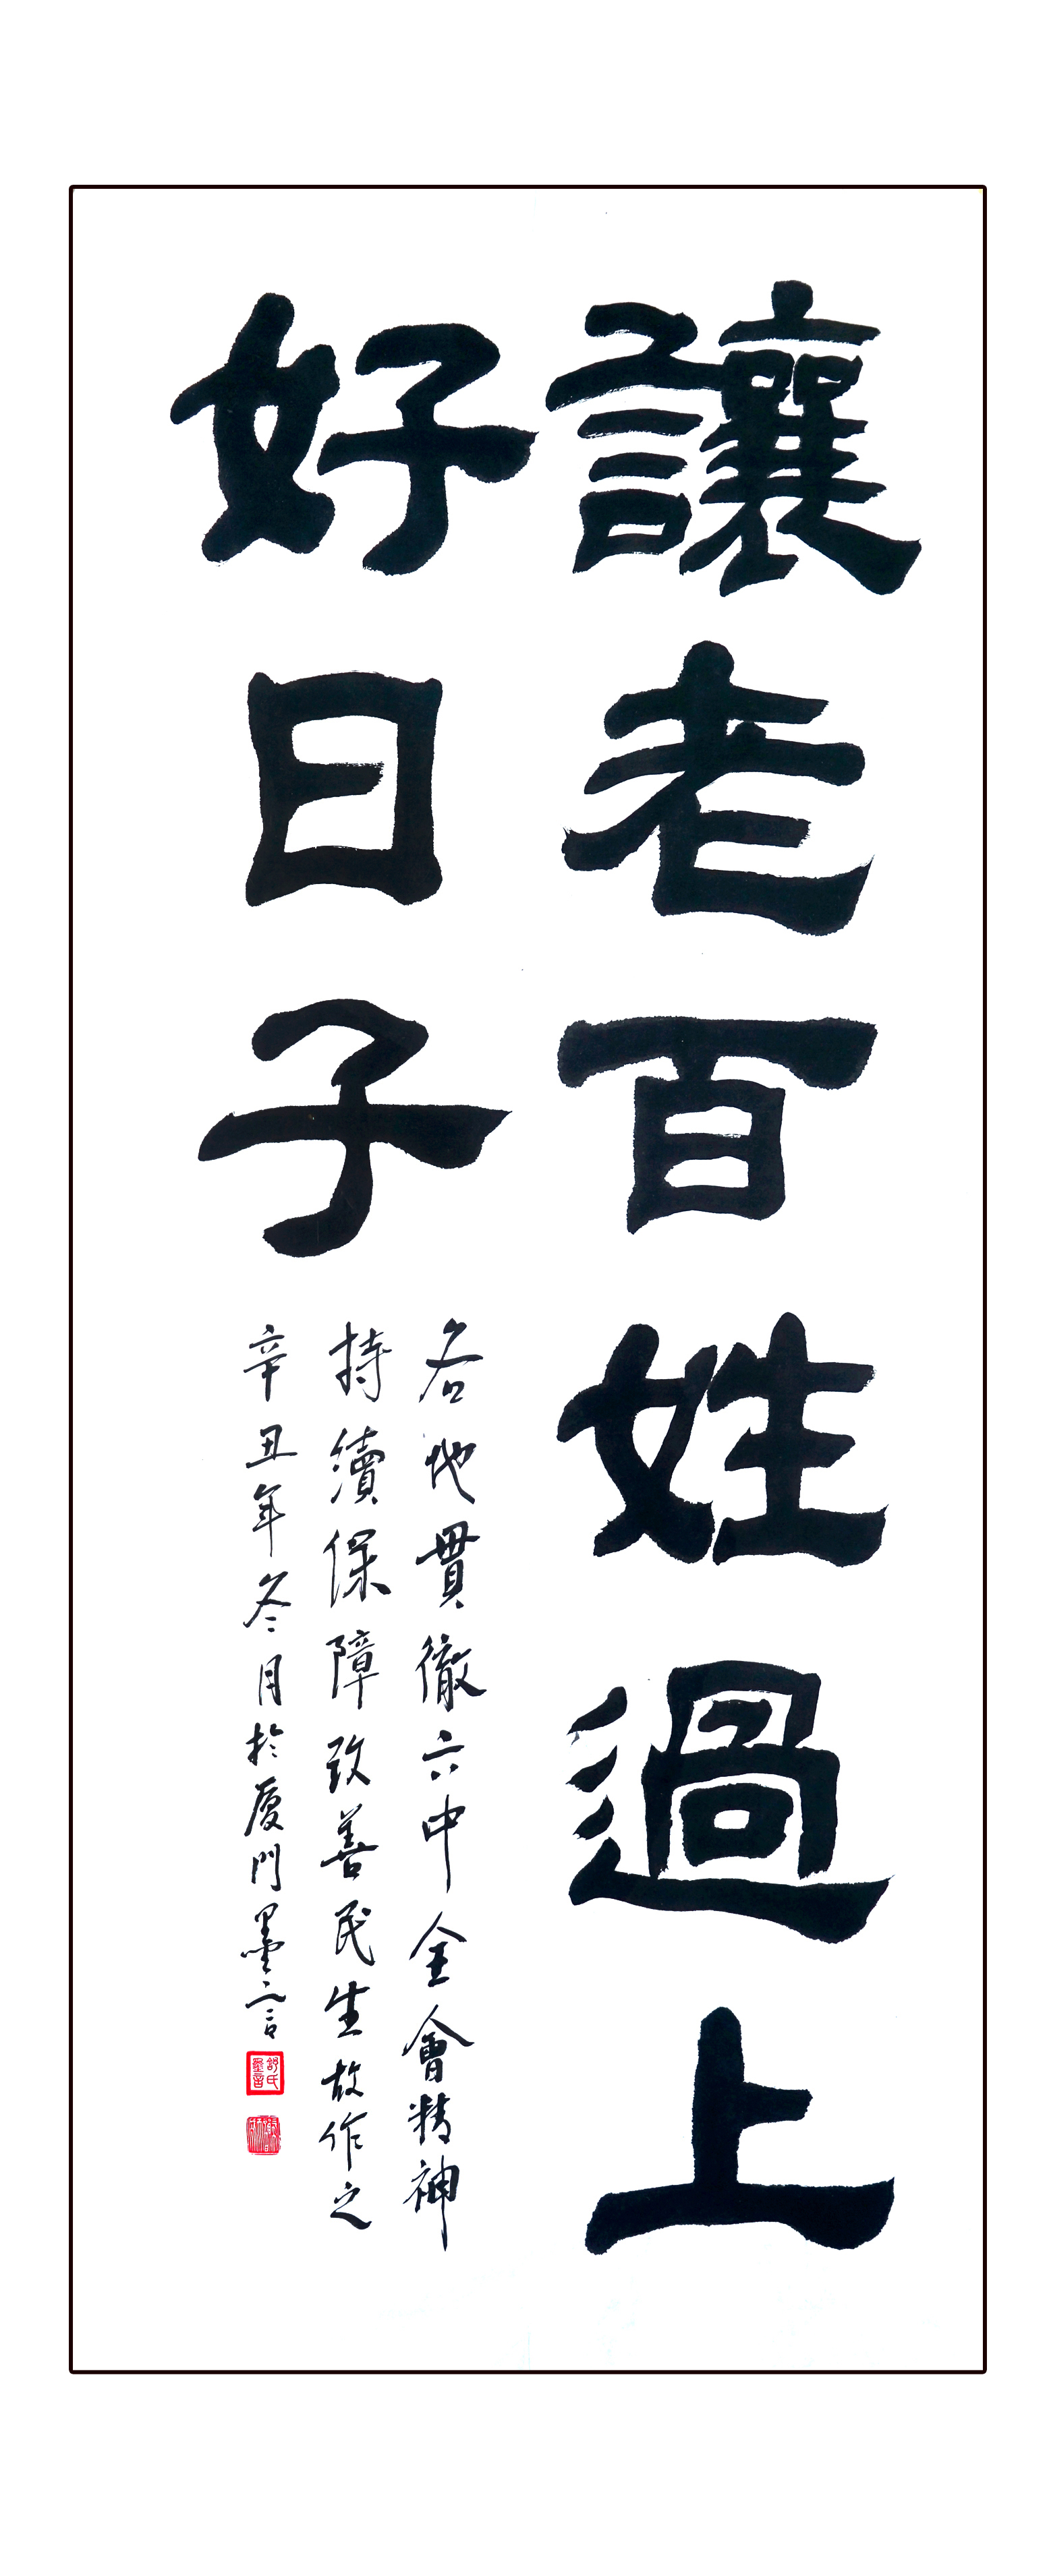 讓老百姓過上
好日子
各地貫徹六中全會精神
持續保障改善民生故作之
辛丑年冬月於厦門墨言
舒氏
墨言